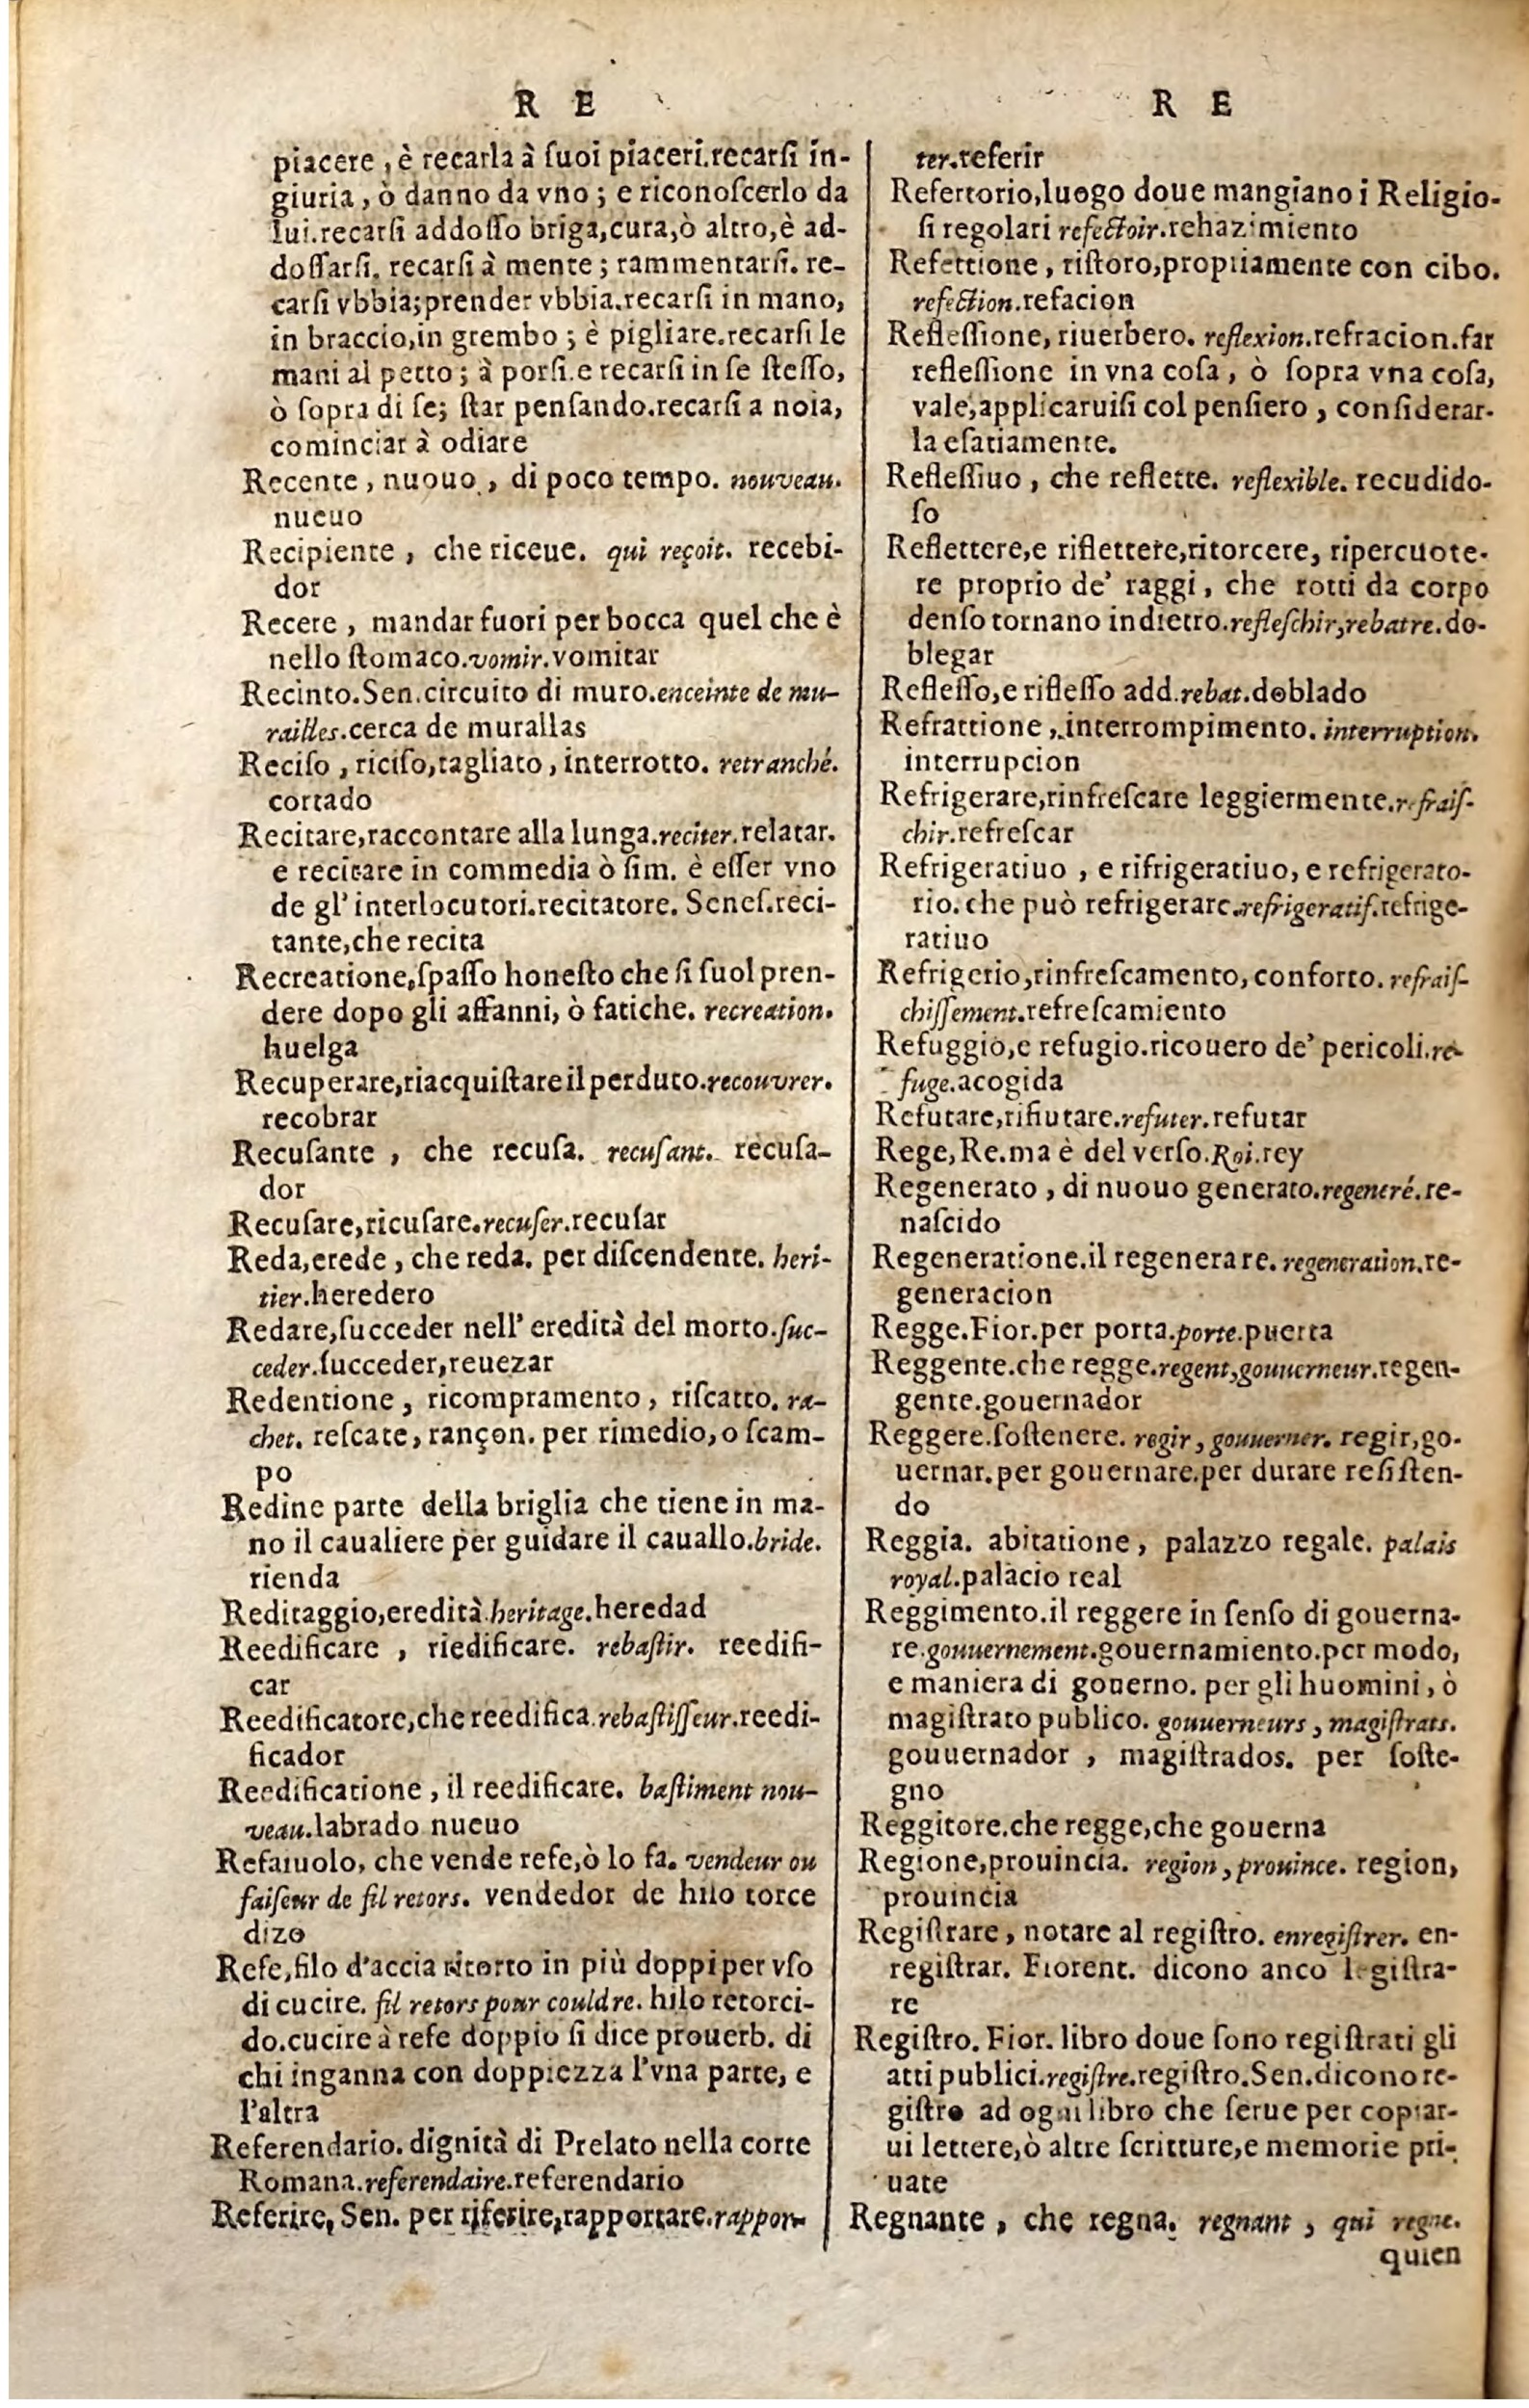 R E
piacere, è recarla à ſuoi piaceri.recarſi in-
giuria, ò danno da vno; e riconoſcerlo da
lui.recarſi addoſſo briga,cura,ò altro,è ad-
doſſarſi. recarſi à mente; rammentarſi. re-
carſi vbbia;prender vbbia.recarſi in mano,
in braccio,in grembo; è pigliare.recarſi le
mani al petto; à porſi.e recarſi in ſe ſteſſo,
ò ſopra di ſe; ſtar penſando.recarſi a noia,
cominciar à odiare
Recente, nuouo, di poco tempo. nouveau.
nueuo
Recipiente, che riceue. qui reçoit. recebi-
dor
Recere, mandar fuori per bocca quel che è
nello ſtomaco.vomir.vomitar
Recinto.Sen.circuito di muro.enceinte de mu-
railles.cerca de murallas
Reciſo, riciſo,tagliato, interrotto. retranché.
cortado
Recitare,raccontare alla lunga.reciter.relatar.
e recitare in commedia ò ſim. è eſſer vno
de gl' interlocutori.recitatore. Seneſ.reci-
tante,che recita
Recreatione,ſpaſſo honeſto che ſi ſuol pren-
dere dopo gli affanni, ò fatiche. recreation.
huelga
Recuperare,riacquiſtare il perduto.recouvrer.
recobrar
Recuſante, che recuſa. recuſant. recuſa-
dor
Recuſare,ricuſare.recuſer.recuſar
Reda,erede, che reda. per diſcendente. heri-
tier.heredero
Redare,ſucceder nell' eredità del morto.ſuc-
ceder.ſucceder,reuezar
Redentione, ricompramento, riſcatto. ra-
chet. reſcate, rançon. per rimedio, o ſcam-
po
Redine parte della briglia che tiene in ma-
no il caualiere per guidare il cauallo.bride.
rienda
Reditaggio,eredità.heritage.heredad
Reedificare, riedificare. rebaſtir. reedifi-
car
Reedificatore,che reedifica.rebaſtiſſeur.reedi-
ficador
Reedificatione, il reedificare. baſtiment nou-
veau.labrado nueuo
Refaiuolo, che vende refe,ò lo fa. vendeur ou
faiſeur de fil retors. vendedor de hilo torce
dizo
Refe,filo d'accia ritorto in più doppi per vſo
di cucire. fil retors pour couldre. hilo retorci-
do.cucire à refe doppio ſi dice prouerb. di
chi inganna con doppiezza l'vna parte, e
l'altra
Referendario. dignità di Prelato nella corte
Romana.referendaire.referendario
Referire, Sen. per riferire,rapportare.rappor-
R E
ter.referir
Refettorio,luogo doue mangiano i Religio-
ſi regolari refectoir.rehazimiento
Refettione, riſtoro,propriamente con cibo.
refection.refacion
Refleſſione, riuerbero. reflexion.refracion.far
refleſſione in vna coſa, ò ſopra vna coſa,
vale,applicaruiſi col penſiero, conſiderar-
la eſatiamente.
Refleſſiuo, che reflette. reflexible. recudido-
ſo
Reflettere,e riflettere,ritorcere, ripercuote-
re proprio de' raggi, che rotti da corpo
denſo tornano indietro.refleſchir,rebatre.do-
blegar
Refleſſo,e rifleſſo add.rebat.doblado
Refrattione, interrompimento. interruption.
interrupcion
Refrigerare,rinfreſcare leggiermente.refraiſ-
chir.refreſcar
Refrigeratiuo, e rifrigeratiuo, e refrigerato-
rio. che può refrigerare.refrigeratif.refrige-
ratiuo
Refrigerio,rinfreſcamento, conforto. refraiſ-
chiſſement.refreſcamiento
Refuggio,e refugio.ricouero de' pericoli.re-
fuge.acogida
Refutare,rifiutare.refuter.refutar
Rege,Re.ma è del verſo.Roi.rey
Regenerato, di nuouo generato.regeneré.re-
naſcido
Regeneratione.il regenerare. regeneration.re-
generacion
Regge.Fior.per porta.porte.puerta
Reggente.che regge.regent,gouuerneur.regen-
gente.gouernador
Reggere.ſoſtenere. regir, gouuerner. regir,go-
uernar.per gouernare.per durare reſiſten-
do
Reggia. abitatione, palazzo regale. palais
royal.palacio real
Reggimento.il reggere in ſenſo di gouerna-
re.gouuernement.gouernamiento.per modo,
e maniera di gouerno. per gli huomini, ò
magiſtrato publico. gouuerneurs, magiſtrats.
gouuernador, magiſtrados. per ſoſte-
gno
Reggitore.che regge,che gouerna
Regione,prouincia. region, prouince. region,
prouincia
Regiſtrare, notare al regiſtro. enregiſtrer. en-
regiſtrar. Fiorent. dicono anco legiſtra-
re
Regiſtro. Fior. libro doue ſono regiſtrati gli
atti publici.regiſtre.regiſtro.Sen.dicono re-
giſtro ad ogni libro che ſerue per copiar-
ui lettere,ò altre ſcritture,e memorie pri-
uate
Regnante, che regna. regnant, qui regne.
quien